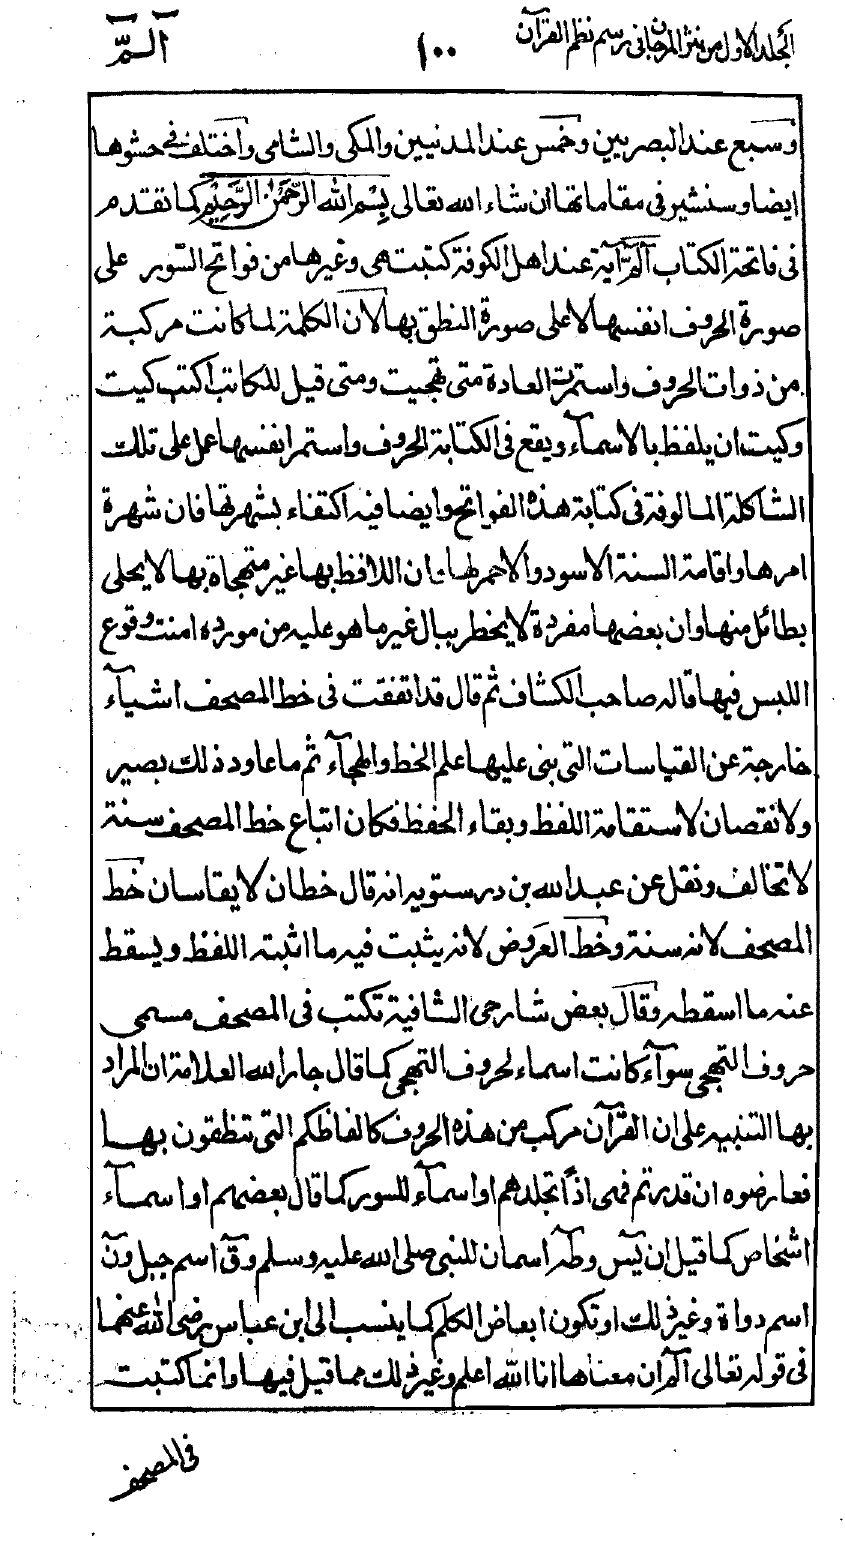 الجلد الاول من نثر المرجان فى رسم نظم القرآن ١٠٠ آلـمّ
وسبع عند البصريين وخمس عند المدنيين والمكى والشامى واختلف فى حشوها
ايضا وسنشير فى مقاماتها ان شاء الله تعالى بِسْمِ اللهِ الرَّحْمٰنِ الرَّحِيْمِ كما تقدم
فى فاتحة الكتاب آلمّ آية عند اهل الكوفة كتبت هى وغيرها من فواتح السّور على
صورة الحروف انفسها لا على صورة النطق بها لان الكلمة لما كانت مركبة
من ذوات الحروف واستمرت العادة متى تهجيت ومتى قيل للكاتب اكتب كيت
وكيت ان يلفظ بالاسمآء ويقع فى الكتابة الحروف واستمر انفسها عمل على تلك
الشاكلة المالوفة فى كتابة هذه الفواتح وايضا فيه اكتفاء بشهرتها فان شهرة
امرها واقامة السنة الاسود والاحمر لها فان اللافظ بها غير متهجاة بها لا يحلى
بطائل منها وان بعضها مفردة لا يخطر ببال غير ما هو عليه من مورده امنت وقوع
اللبس فيها قاله صاحب الكشاف ثم قال قد اتفقت فى خط المصحف اشيآء
خارجة عن القياسات التى بنى عليها علم الخط والهجآء ثم ما عاود ذلك بصير
ولا نقصان لاستقامة اللفظ وبقاء الحفظ فكان اتباع خط المصحف سنة
لا تخالف ونقل عن عبد الله بن درستويه انه قال خطان لا يقاسان خط
المصحف لانه سنة وخط العَروض لانه يثبت فيه ما اثبته اللفظ ويسقط
عنه ما اسقطه وقال بعض شارحى الشافية تكتب فى المصحف مسمى
حروف التهجى سوآء كانت اسماء لحروف التهجى كما قال جار الله العلامة ان المراد
بها التنبيه على ان القرآن مركب من هذه الحروف كالفاظكم التى تتظقون بها
فعارضوه ان قدرتم فهى اذًا تجلدهم او اسمآء للسور كما قال بعضهم او اسمآء
اشخاص كما قيل ان يٓس وطٓه اسمان للنبى صلى الله عليه وسلم وقٓ اسم جبل ونٓ
اسم دواة وغير ذلك او تكون ابعاض الكلم كما ينسب الى ابن عباس رضى الله عنهما
فى قوله تعالى آلمّ ان معناها انا الله اعلم وغير ذلك مما قيل فيها وانما كتبت
فى المصحف